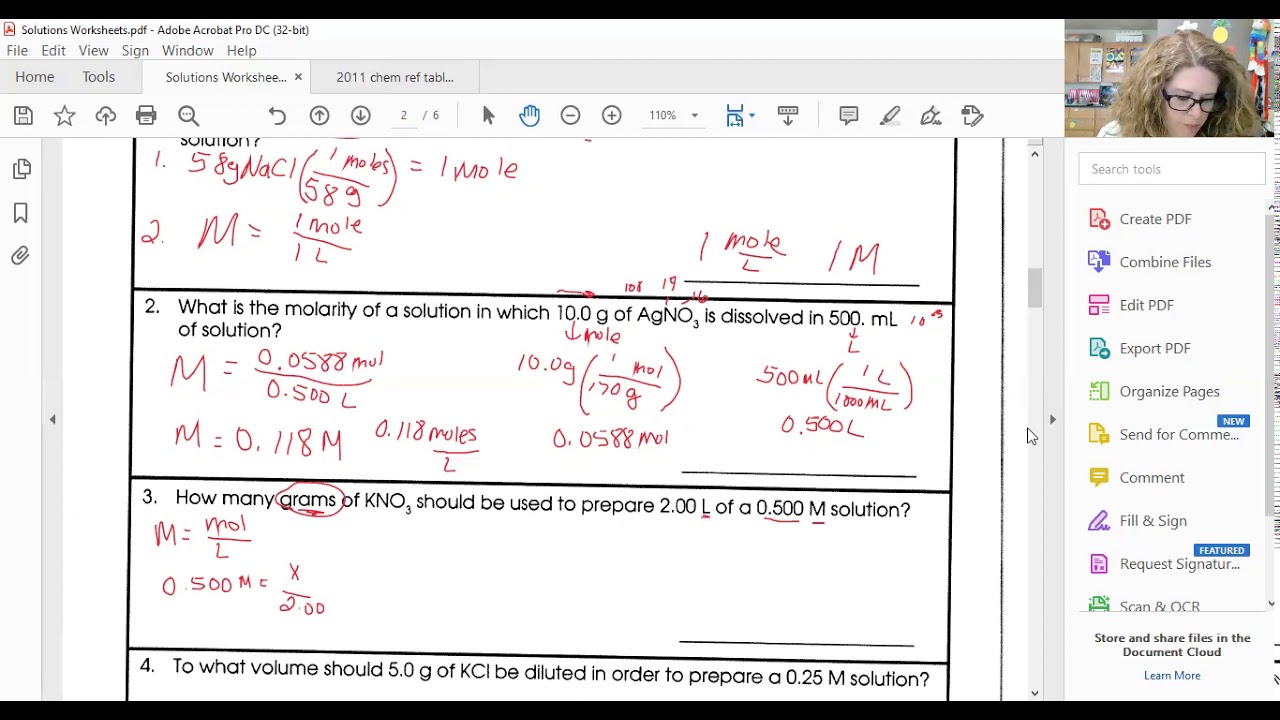 Solutions Worksheets.pdf - Adobe Acrobat Pro DC (32-bit)
File Edit View Sign Window Help
Home Tools Solutions Workshee... × 2011 chem ref tabl...
2 / 6 110%
solution?
1. 58gNaCl(1 moles/58 g) = 1 mole
2. M = 1 mole/1 L
1 mole/L 1 M
108 19 16
2. What is the molarity of a solution in which 10.0 g of AgNO3 is dissolved in 500. mL
of solution?
mole
L
M = 0.0588 mol/0.500 L 10.0g(1 mol/170 g) 500mL(1 L/1000 mL)
M = 0.118 M 0.118 moles/L 0.0588 mol 0.500 L
3. How many grams of KNO3 should be used to prepare 2.00 L of a 0.500 M solution?
M = mol/L
0.500 M = x/2.00
4. To what volume should 5.0 g of KCl be diluted in order to prepare a 0.25 M solution?
Search tools
Create PDF
Combine Files
Edit PDF
Export PDF
Organize Pages
NEW
Send for Comme...
Comment
Fill & Sign
FEATURED
Request Signatur...
Scan & OCR
Store and share files in the
Document Cloud
Learn More